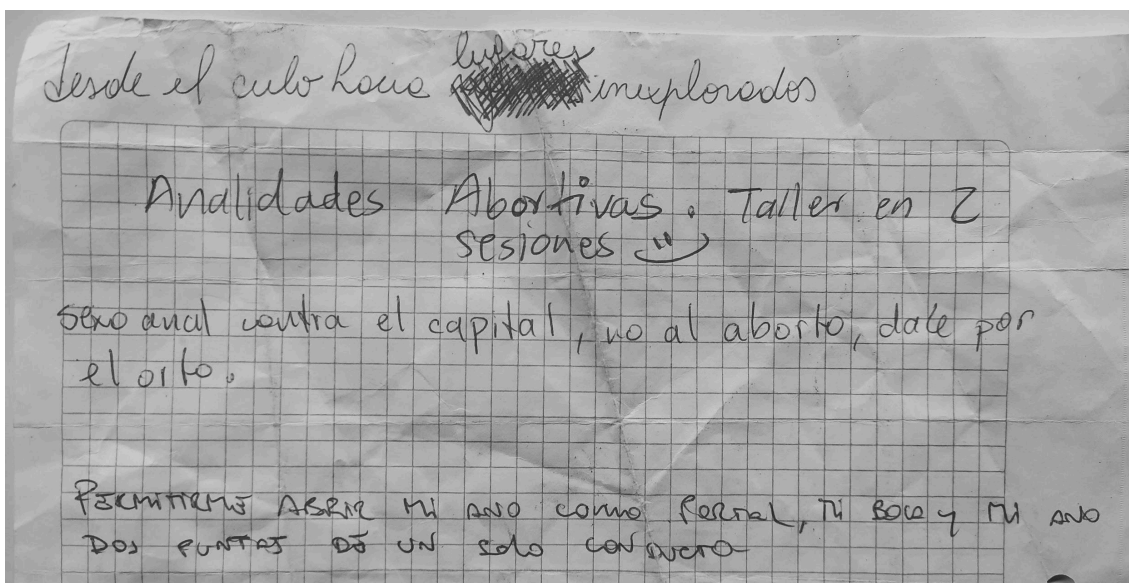 lugares
desde el culo hacia inexplorados
Analidades Abortivas. Taller en 2
sesiones
sexo anal contra el capital, no al aborto, dale por
el orto.
PERMITIRME ABRIR MI ANO COMO PORTAL, MI BOCA Y MI ANO
DOS PUNTAS DE UN SOLO CONDUCTO